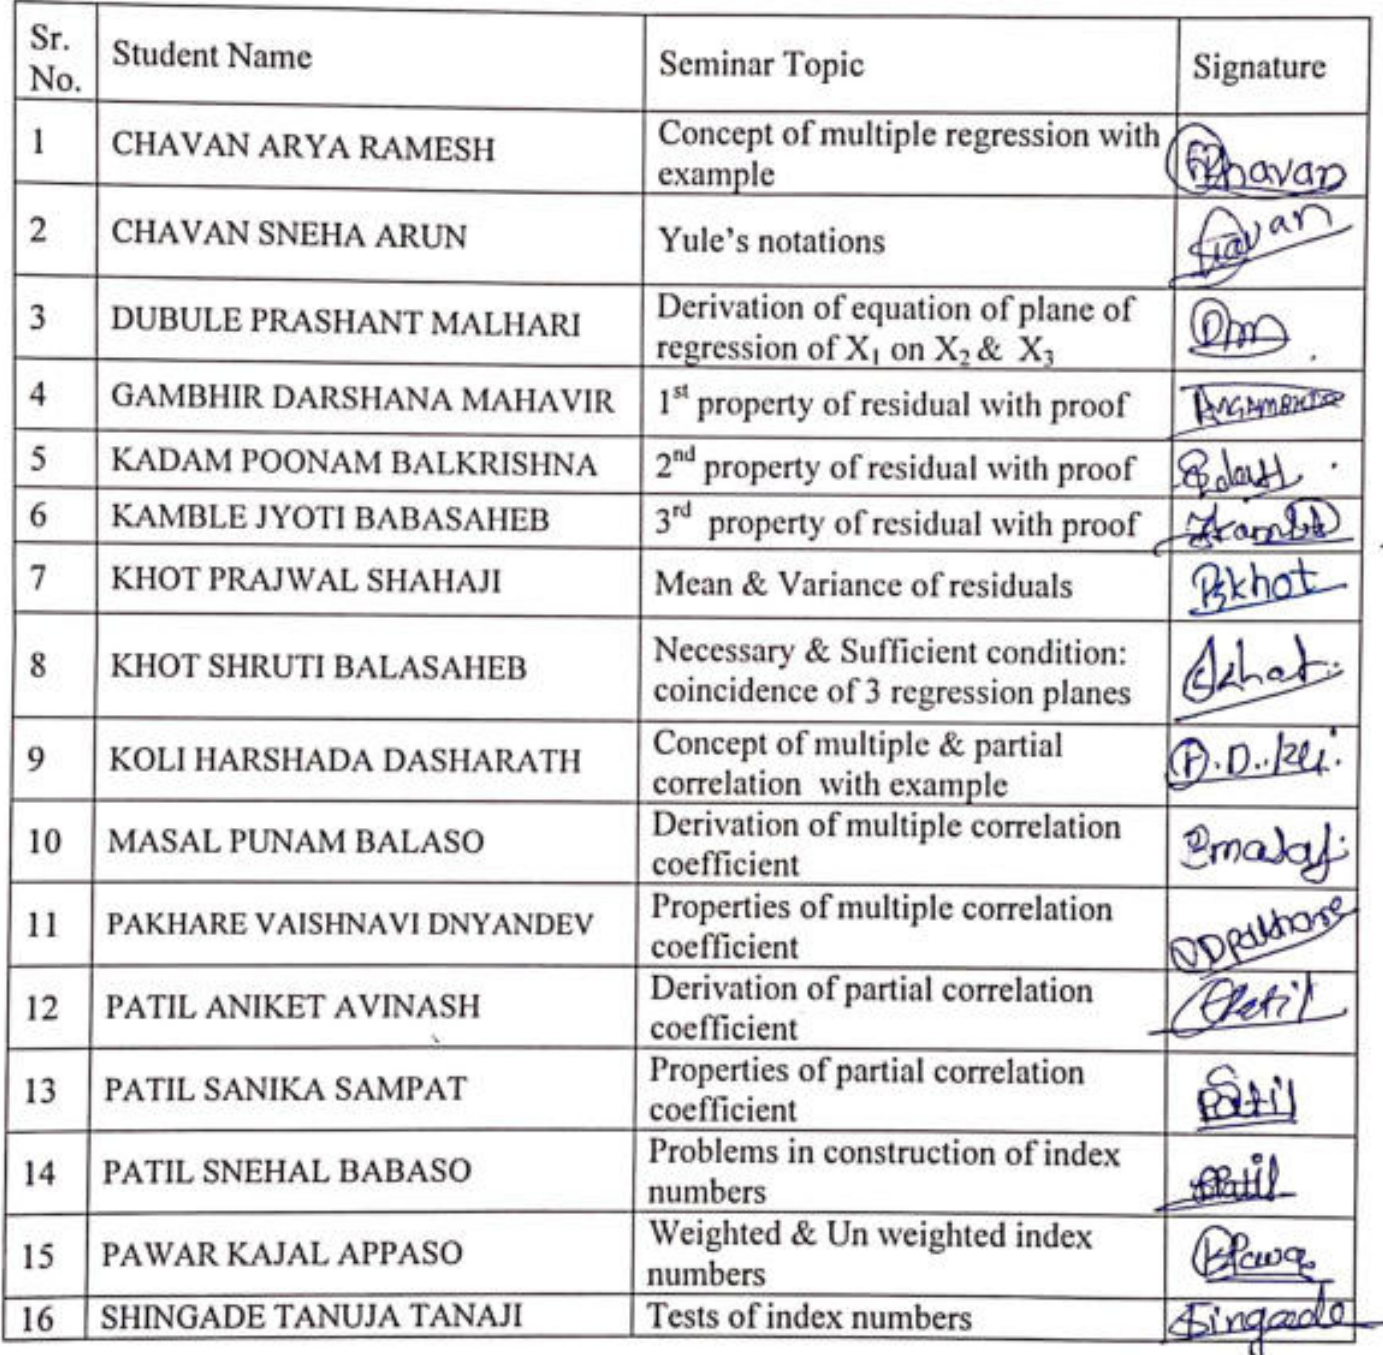 Sr. No. Student Name Seminar Topic Signature
1 CHAVAN ARYA RAMESH Concept of multiple regression with example Chavan
2 CHAVAN SNEHA ARUN Yule's notations
3 DUBULE PRASHANT MALHARI Derivation of equation of plane of regression of X₁ on X₂ & X₃
4 GAMBHIR DARSHANA MAHAVIR 1st property of residual with proof
5 KADAM POONAM BALKRISHNA 2nd property of residual with proof
6 KAMBLE JYOTI BABASAHEB 3rd property of residual with proof
7 KHOT PRAJWAL SHAHAJI Mean & Variance of residuals Pskhot
8 KHOT SHRUTI BALASAHEB Necessary & Sufficient condition: coincidence of 3 regression planes
9 KOLI HARSHADA DASHARATH Concept of multiple & partial correlation with example
10 MASAL PUNAM BALASO Derivation of multiple correlation coefficient
11 PAKHARE VAISHNAVI DNYANDEV Properties of multiple correlation coefficient VDPakhare
12 PATIL ANIKET AVINASH Derivation of partial correlation coefficient
13 PATIL SANIKA SAMPAT Properties of partial correlation coefficient Patil
14 PATIL SNEHAL BABASO Problems in construction of index numbers
15 PAWAR KAJAL APPASO Weighted & Un weighted index numbers
16 SHINGADE TANUJA TANAJI Tests of index numbers